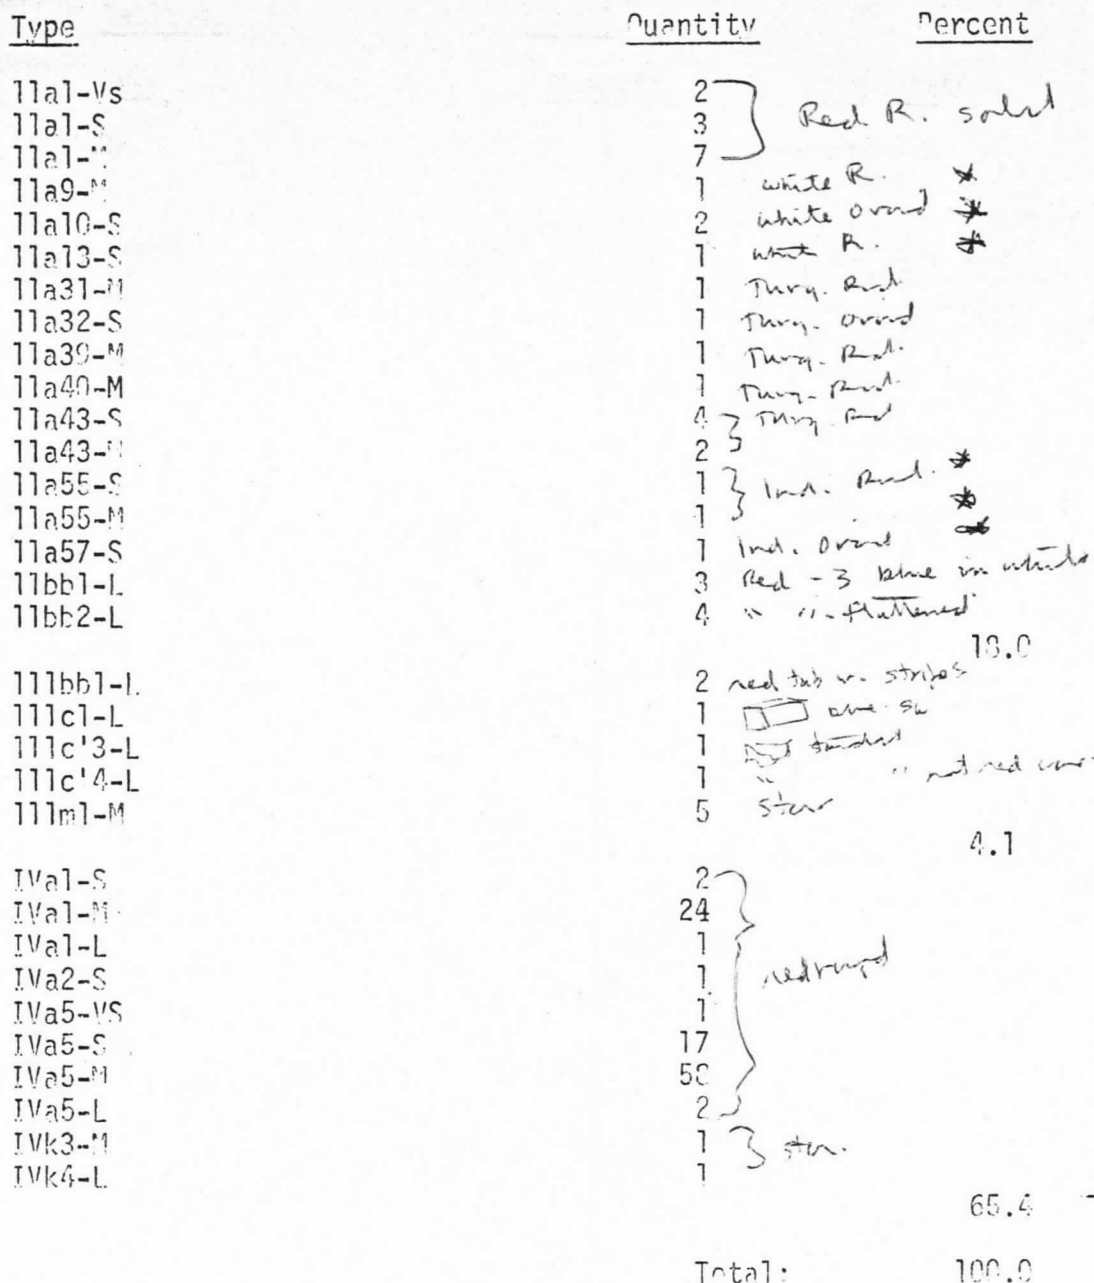 Type Quantity Percent
11a1-Vs 2
11a1-S 3 Red R. solid
11a1-M 7
11a9-M 1 white R. *
11a10-S 2 white ovoid *
11a13-S 1 white R. *
11a31-M 1 Turq. Rnd.
11a32-S 1 Turq. ovoid
11a39-M 1 Turq. Rnd.
11a40-M 1 Turq. Rnd.
11a43-S 4 Turq. Rnd
11a43-M 2
11a55-S 1 Ind. Rnd. *
11a55-M 1 *
11a57-S 1 Ind. Ovoid *
11bb1-L 3 Red - 3 blue in white
11bb2-L 4 " " - flattened
18.0
111bb1-L 2 red tub w. stripes
111c1-L 1 blue
111c'3-L 1
111c'4-L 1 " " not red
111m1-M 5 Star
4.1
IVa1-S 2
IVa1-M 24
IVa1-L 1
IVa2-S 1 red round
IVa5-VS 1
IVa5-S 17
IVa5-M
IVa5-L 2
IVk3-M 1 star.
IVk4-L 1
65.4
Total: 100.0